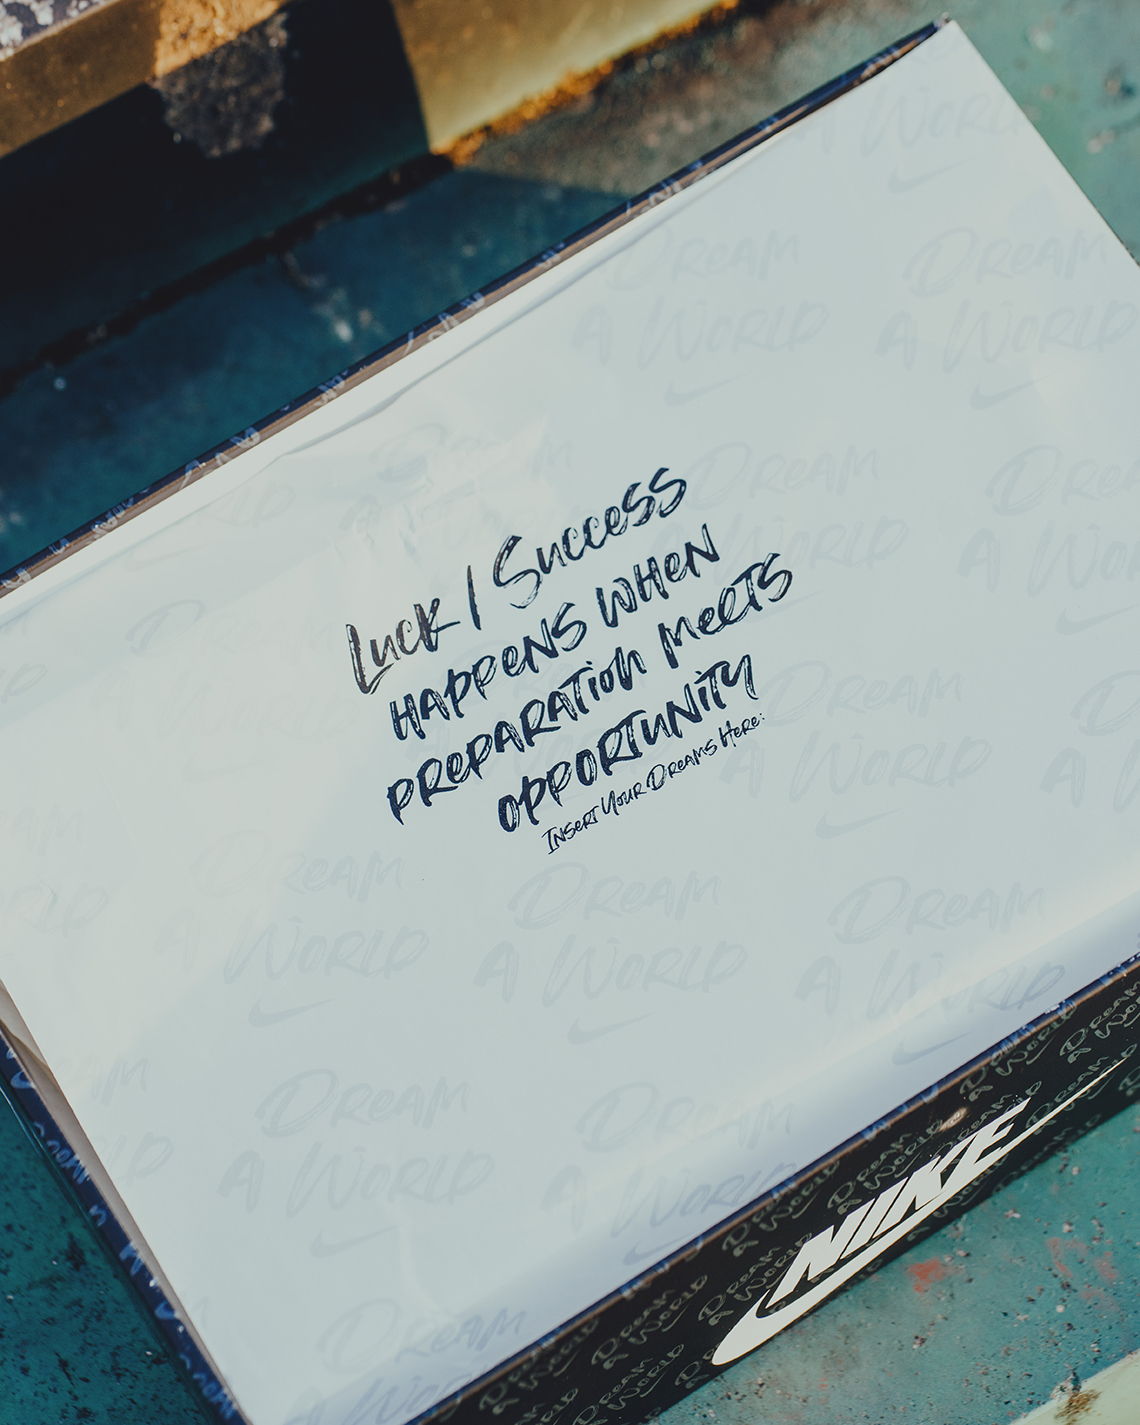 Luck / Success
HAPPENS WHEN
PREPARATION MEETS
OPPORTUNITY
Insert Your Dreams Here:
DREAM
A WORLD
DREAM
A WORLD
DREAM
A WORLD
DREAM
A WORLD
DREAM
A WORLD
DREAM
A WORLD
DREAM
A WORLD
DREAM
A WORLD
DREAM
A WORLD
DREAM
NIKE